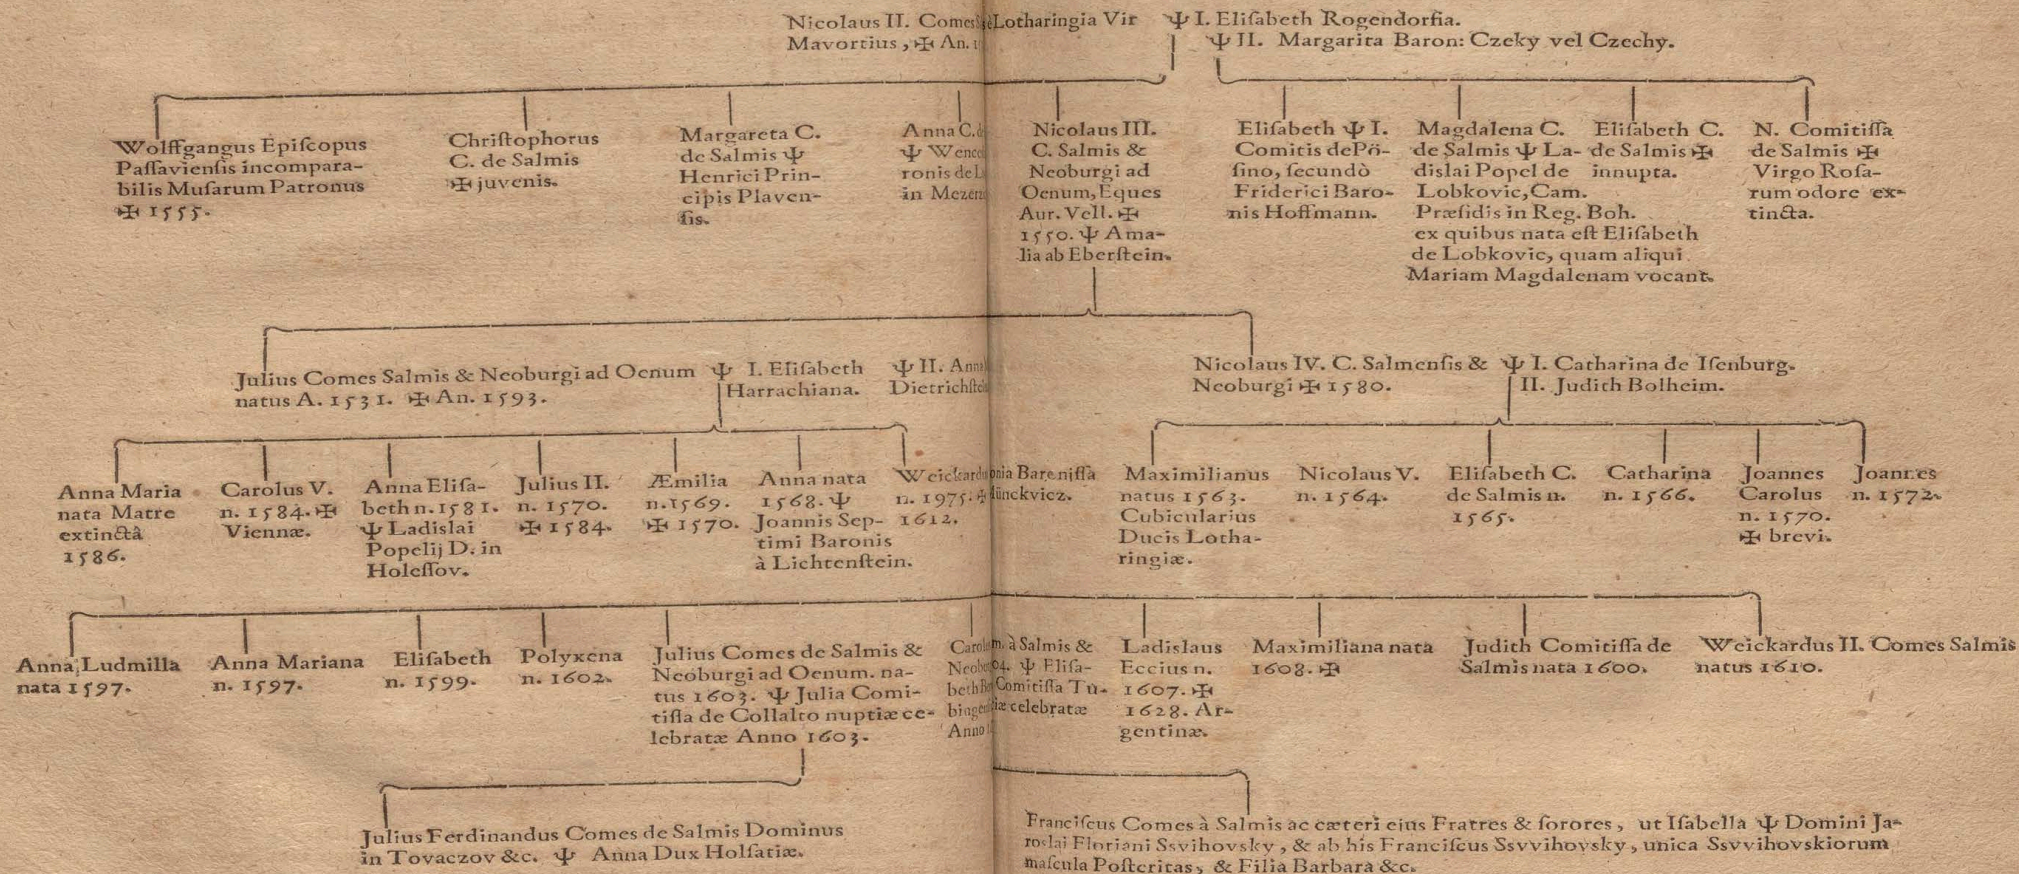 Nicolaus II. Comes Lotharingia Vir
Mavortius, ✠ An.
Ψ I. Elisabeth Rogendorfia.
Ψ II. Margarita Baron: Czeky vel Czechy.
Wolffgangus Episcopus
Passaviensis incompara-
bilis Musarum Patronus
✠ 1555.
Christophorus
C. de Salmis
✠ juvenis.
Margareta C.
de Salmis Ψ
Henrici Prin-
cipis Plaven-
sis.
Anna C.
Ψ
ronis de
in
Nicolaus III.
C. Salmis &
Neoburgi ad
Oenum, Eques
Aur. Vell. ✠
1550. Ψ Ama-
lia ab Eberstein.
Elisabeth Ψ I.
Comitis de Pö-
sino, secundò
Friderici Baro-
nis Hoffmann.
Magdalena C.
de Salmis Ψ La-
dislai Popel de
Lobkovic, Cam.
Præsidis in Reg. Boh.
ex quibus nata est Elisabeth
de Lobkovic, quam aliqui
Mariam Magdalenam vocant.
Elisabeth C.
de Salmis ✠
innupta.
N. Comitissa
de Salmis ✠
Virgo Rosa-
rum odore ex-
tincta.
Julius Comes Salmis & Neoburgi ad Oenum
natus A. 1531. ✠ An. 1593.
Ψ I. Elisabeth
Harrachiana.
Ψ II. Anna
Nicolaus IV. C. Salmensis &
Neoburgi ✠ 1580.
Ψ I. Catharina de Isenburg.
II. Judith Bolheim.
Anna Maria
nata Matre
extinctâ
1586.
Carolus V.
n. 1584. ✠
Viennæ.
Anna Elisa-
beth n. 1581.
Ψ Ladislai
Popelij D. in
Holessov.
Julius II.
n. 1570.
✠ 1584.
Æmilia
n. 1569.
✠ 1570.
Anna nata
1568. Ψ
Joannis Sep-
timi Baronis
à Lichtenstein.
n. 1975. ✠
1612.
Barenissa
Maximilianus
natus 1563.
Cubicularius
Ducis Lotha-
ringiæ.
Nicolaus V.
n. 1564.
Elisabeth C.
de Salmis n.
1565.
Catharina
n. 1566.
Joannes
Carolus
n. 1570.
✠ brevi.
Joannes
n. 1572.
Anna Ludmilla
nata 1597.
Anna Mariana
n. 1597.
Elisabeth
n. 1599.
Polyxena
n. 1602.
Julius Comes de Salmis &
Neoburgi ad Oenum. na-
tus 1603. Ψ Julia Comi-
tissa de Collalto nuptiæ ce-
lebratæ Anno 1603.
à Salmis &
Ψ Elisa-
beth Comitissa Tu-
celebratæ
Anno
Ladislaus
Eccius n.
1607. ✠
1628. Ar-
gentinæ.
Maximiliana nata
1608. ✠
Judith Comitissa de
Salmis nata 1600.
Weickardus II. Comes Salmis
natus 1610.
Julius Ferdinandus Comes de Salmis Dominus
in Tovaczov &c. Ψ Anna Dux Holsatiæ.
Franciscus Comes à Salmis ac cæteri ejus Fratres & sorores, ut Isabella Ψ Domini Ja-
roslai Floriani Ssvihovsky, & ab his Franciscus Ssvvihovsky, unica Ssvvihovskiorum
mascula Posteritas, & Filia Barbara &c.